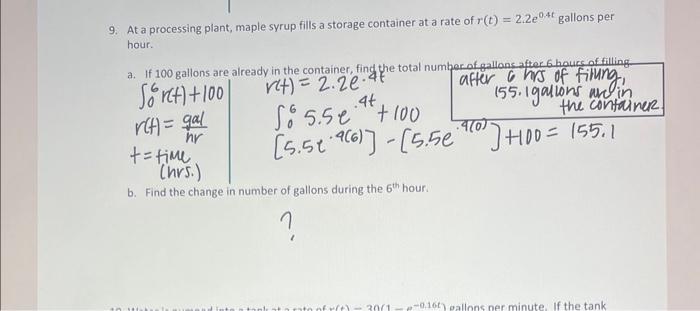 9. At a processing plant, maple syrup fills a storage container at a rate of r(t) = 2.2e^0.4t gallons per
hour.
a. If 100 gallons are already in the container, find the total number of gallons after 6 hours of filling.
∫₀⁶ r(t) + 100
r(t) = gal/hr
t = time
(hrs.)
r(t) = 2.2e^.4t
∫₀⁶ 5.5e^.4t + 100
[5.5e^.4(6)] - [5.5e^.4(0)] + 100 = 155.1
after 6 hrs of filling,
155.1 gallons are in
the container.
b. Find the change in number of gallons during the 6th hour.
?
gallons per minute. If the tank